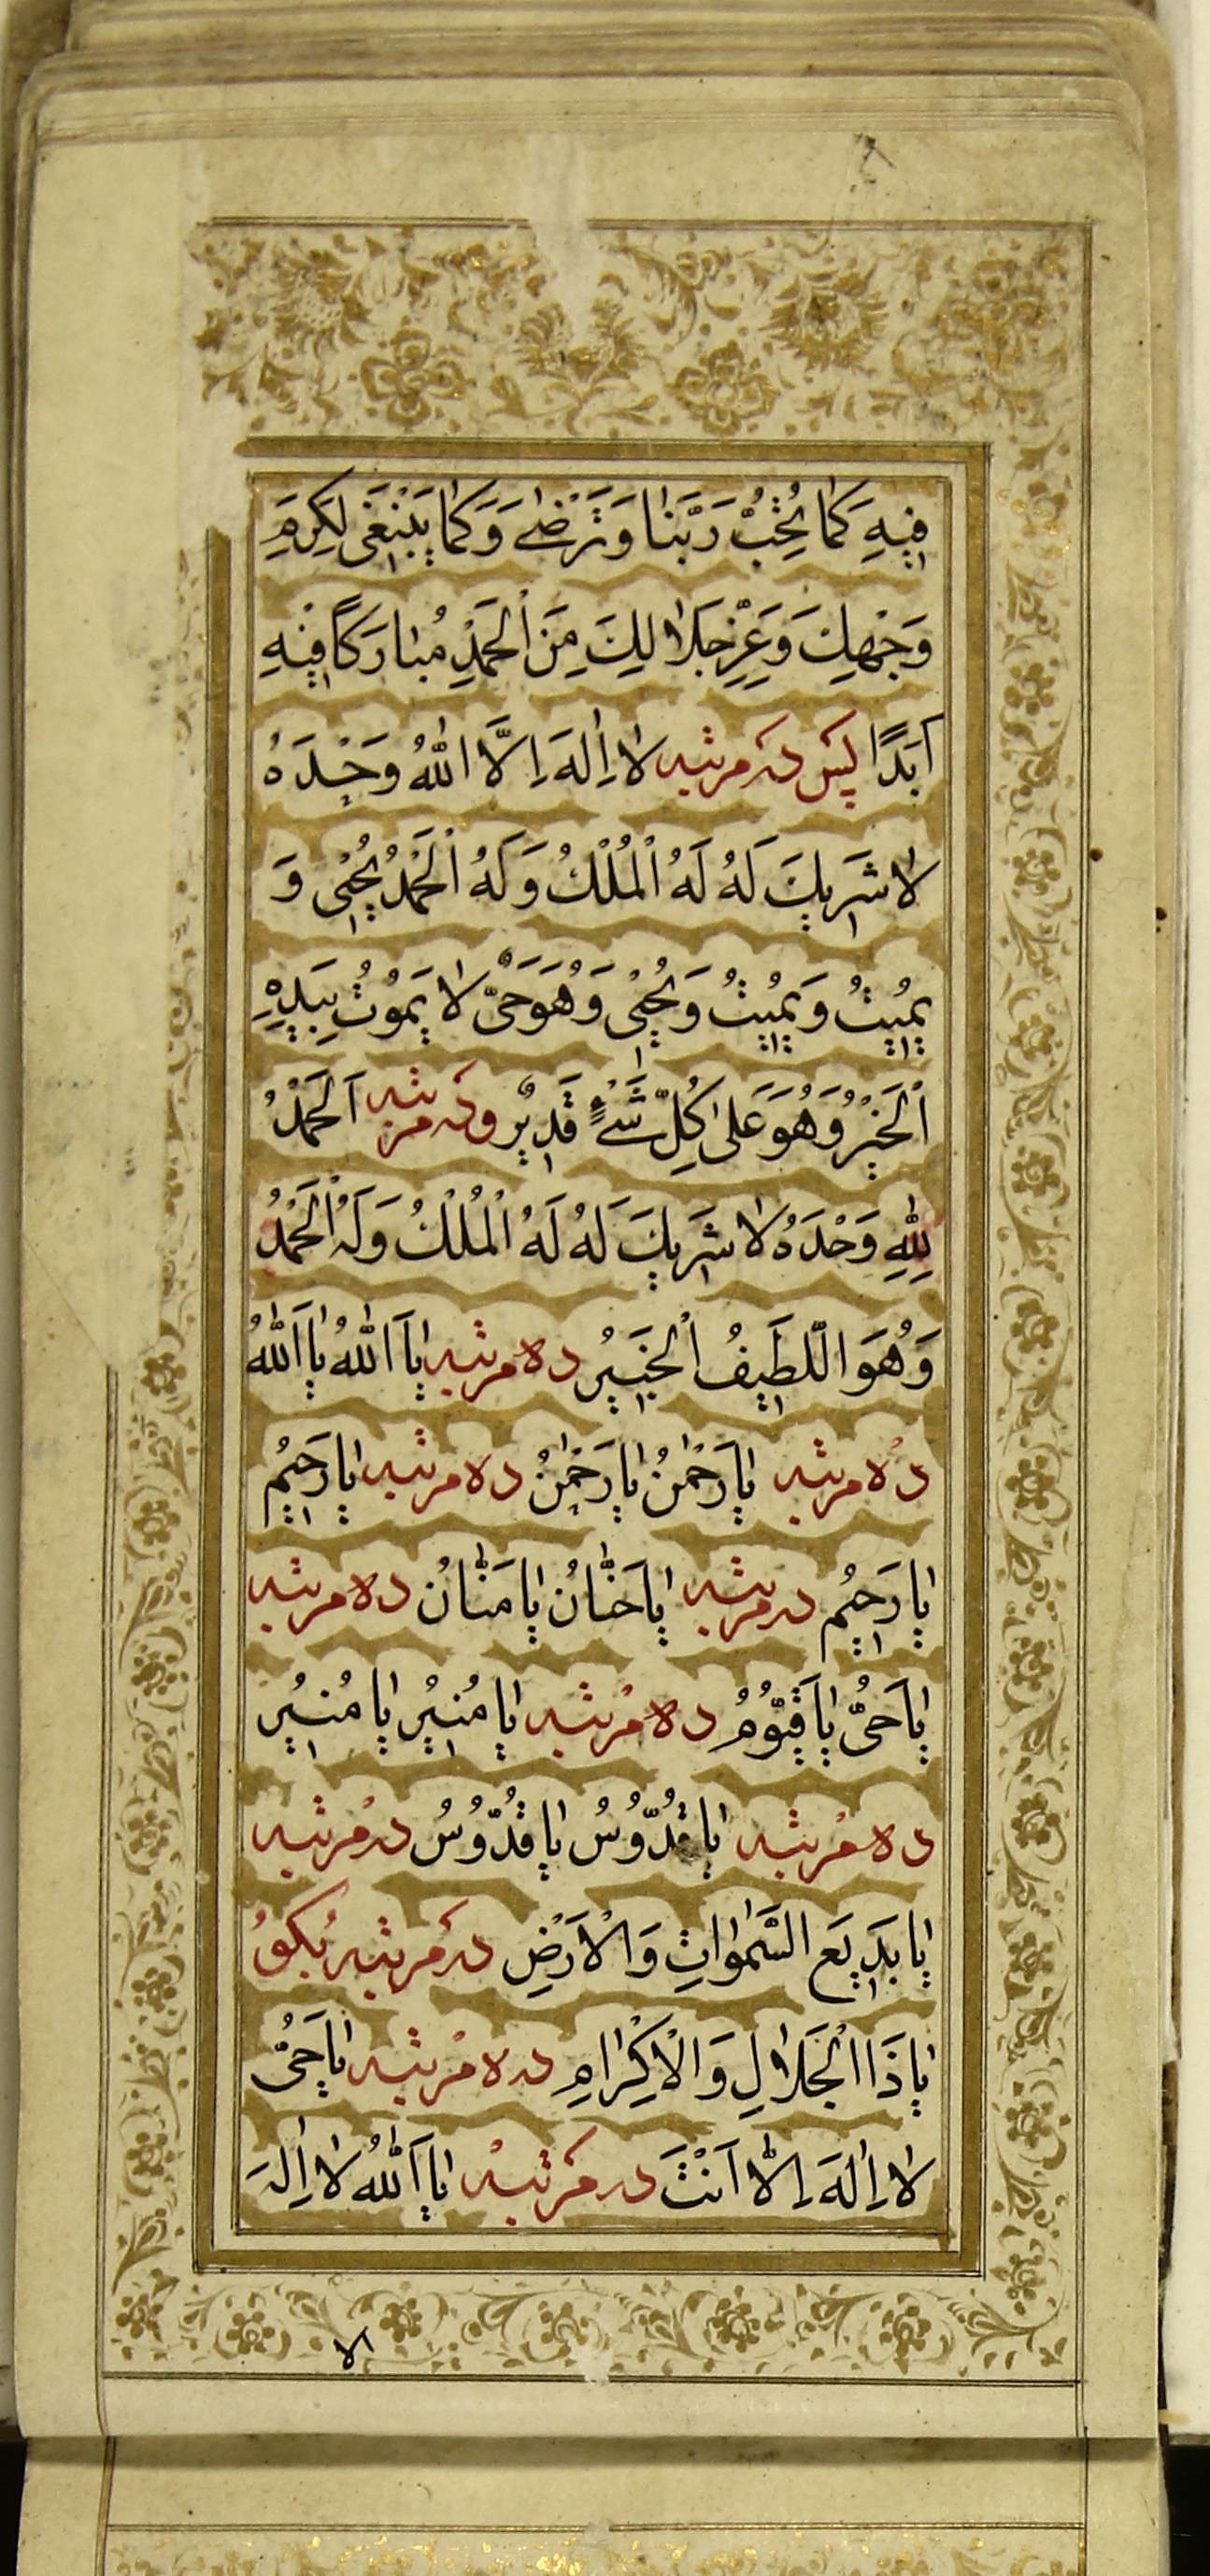 فِيهِ كَمٰا تُحِبُّ رَبَّنٰا وَتَرْضٰى وَكَمٰا يَنْبَغى لِكَرَمِ
وَجْهِكَ وَعِزِّ جَلاٰلِكَ مِنَ الْحَمْدِ مُبٰارَكًا فِيهِ
اَبَدًا پس ده مرتبه لاٰ اِلٰهَ اِلَّا اللّٰهُ وَحْدَهُ
لاٰ شَرِيكَ لَهُ لَهُ الْمُلْكُ وَلَهُ الْحَمْدُ يُحْيِى وَ
يُمِيتُ وَيُمِيتُ وَيُحْيِى وَهُوَ حَىٌّ لاٰ يَمُوتُ بِيَدِهِ
الْخَيْرُ وَهُوَ عَلىٰ كُلِّ شَىْءٍ قَدِيرٌ وده مرتبه اَلْحَمْدُ
لِلّٰهِ وَحْدَهُ لاٰ شَرِيكَ لَهُ لَهُ الْمُلْكُ وَلَهُ الْحَمْدُ
وَهُوَ اللَّطِيفُ الْخَبِيرُ ده مرتبه يٰا اَللّٰهُ يٰا اَللّٰهُ
ده مرتبه يٰا رَحْمٰنُ يٰا رَحْمٰنُ ده مرتبه يٰا رَحِيمُ
يٰا رَحِيمُ ده مرتبه يٰا حَنّٰانُ يٰا مَنّٰانُ ده مرتبه
يٰا حَىُّ يٰا قَيُّومُ ده مرتبه يٰا مُنِيرُ يٰا مُنِيرُ
ده مرتبه يٰا قُدُّوسُ يٰا قُدُّوسُ ده مرتبه
يٰا بَدِيعَ السَّمٰوٰاتِ وَالْاَرْضِ ده مرتبه بگو
يٰا ذَا الْجَلاٰلِ وَالْاِكْرٰامِ ده مرتبه يٰا حَىُّ
لاٰ اِلٰهَ اِلّٰا اَنْتَ ده مرتبه يٰا اَللّٰهُ لاٰ اِلٰهَ
الا